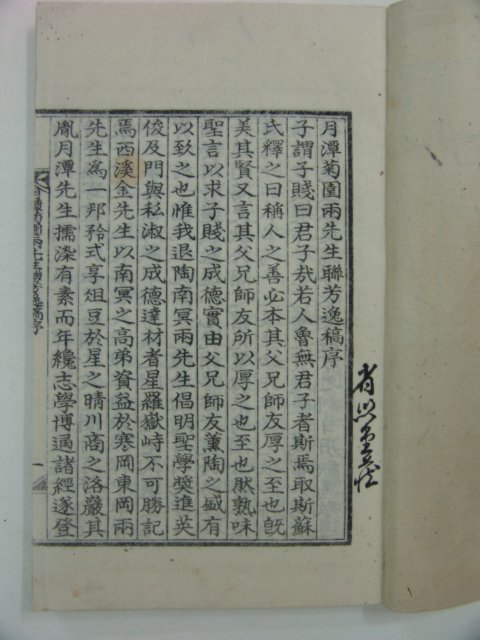 月潭菊園兩先生聯芳逸稿序
子謂子賤曰君子哉若人魯無君子者斯焉取斯蘇
氏釋之曰稱人之善必本其父兄師友厚之至也旣
美其賢又言其父兄師友所以厚之也至也肰孰味
聖言以求子賤之成德實由父兄師友薰陶之盛有
以致之也惟我退陶南冥兩先生倡明聖學奬進英
俊及門與私淑之成德達材者星羅嶽峙不可勝記
焉西溪金先生以南冥之高弟資益於寒岡東岡兩
先生爲一邦矜式享俎豆於星之晴川商之洛巖其
胤月潭先生擩染有素而年纔志學博通諸經遂登
月潭菊園兩先生聯芳逸稿序
一